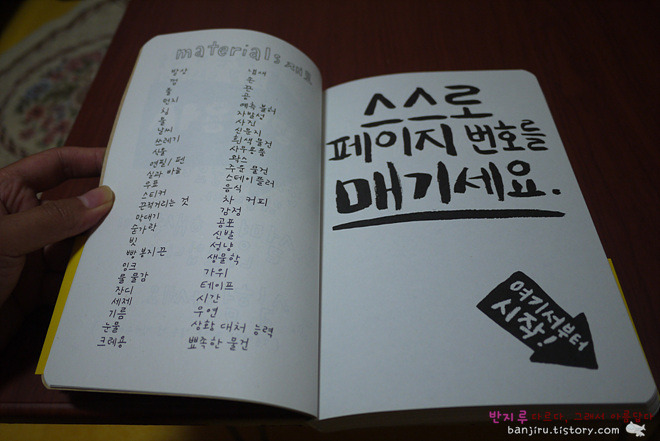 materials
발상
껌
풀
먼지
침
돌
날씨
쓰레기
식물
연필 / 펜
실과 바늘
우표
스티커
끈적거리는 것
막대기
숟가락
빗
빵 봉지 끈
잉크
물 물감
잔디
세제
기름
눈물
크레용
냄새
손
끈
공
예측 불허
자발성
사진
신문지
흰색 물건
사무용품
왁스
주운 물건
스테이플러
음식
차 커피
감정
공포
신발
성냥
생물학
가위
테이프
시간
우연
상황 대처 능력
뾰족한 물건
스스로
페이지 번호를
매기세요.
여기서부터
시작!
반지루 다르다, 그래서 아름답다
banjiru.tistory.com